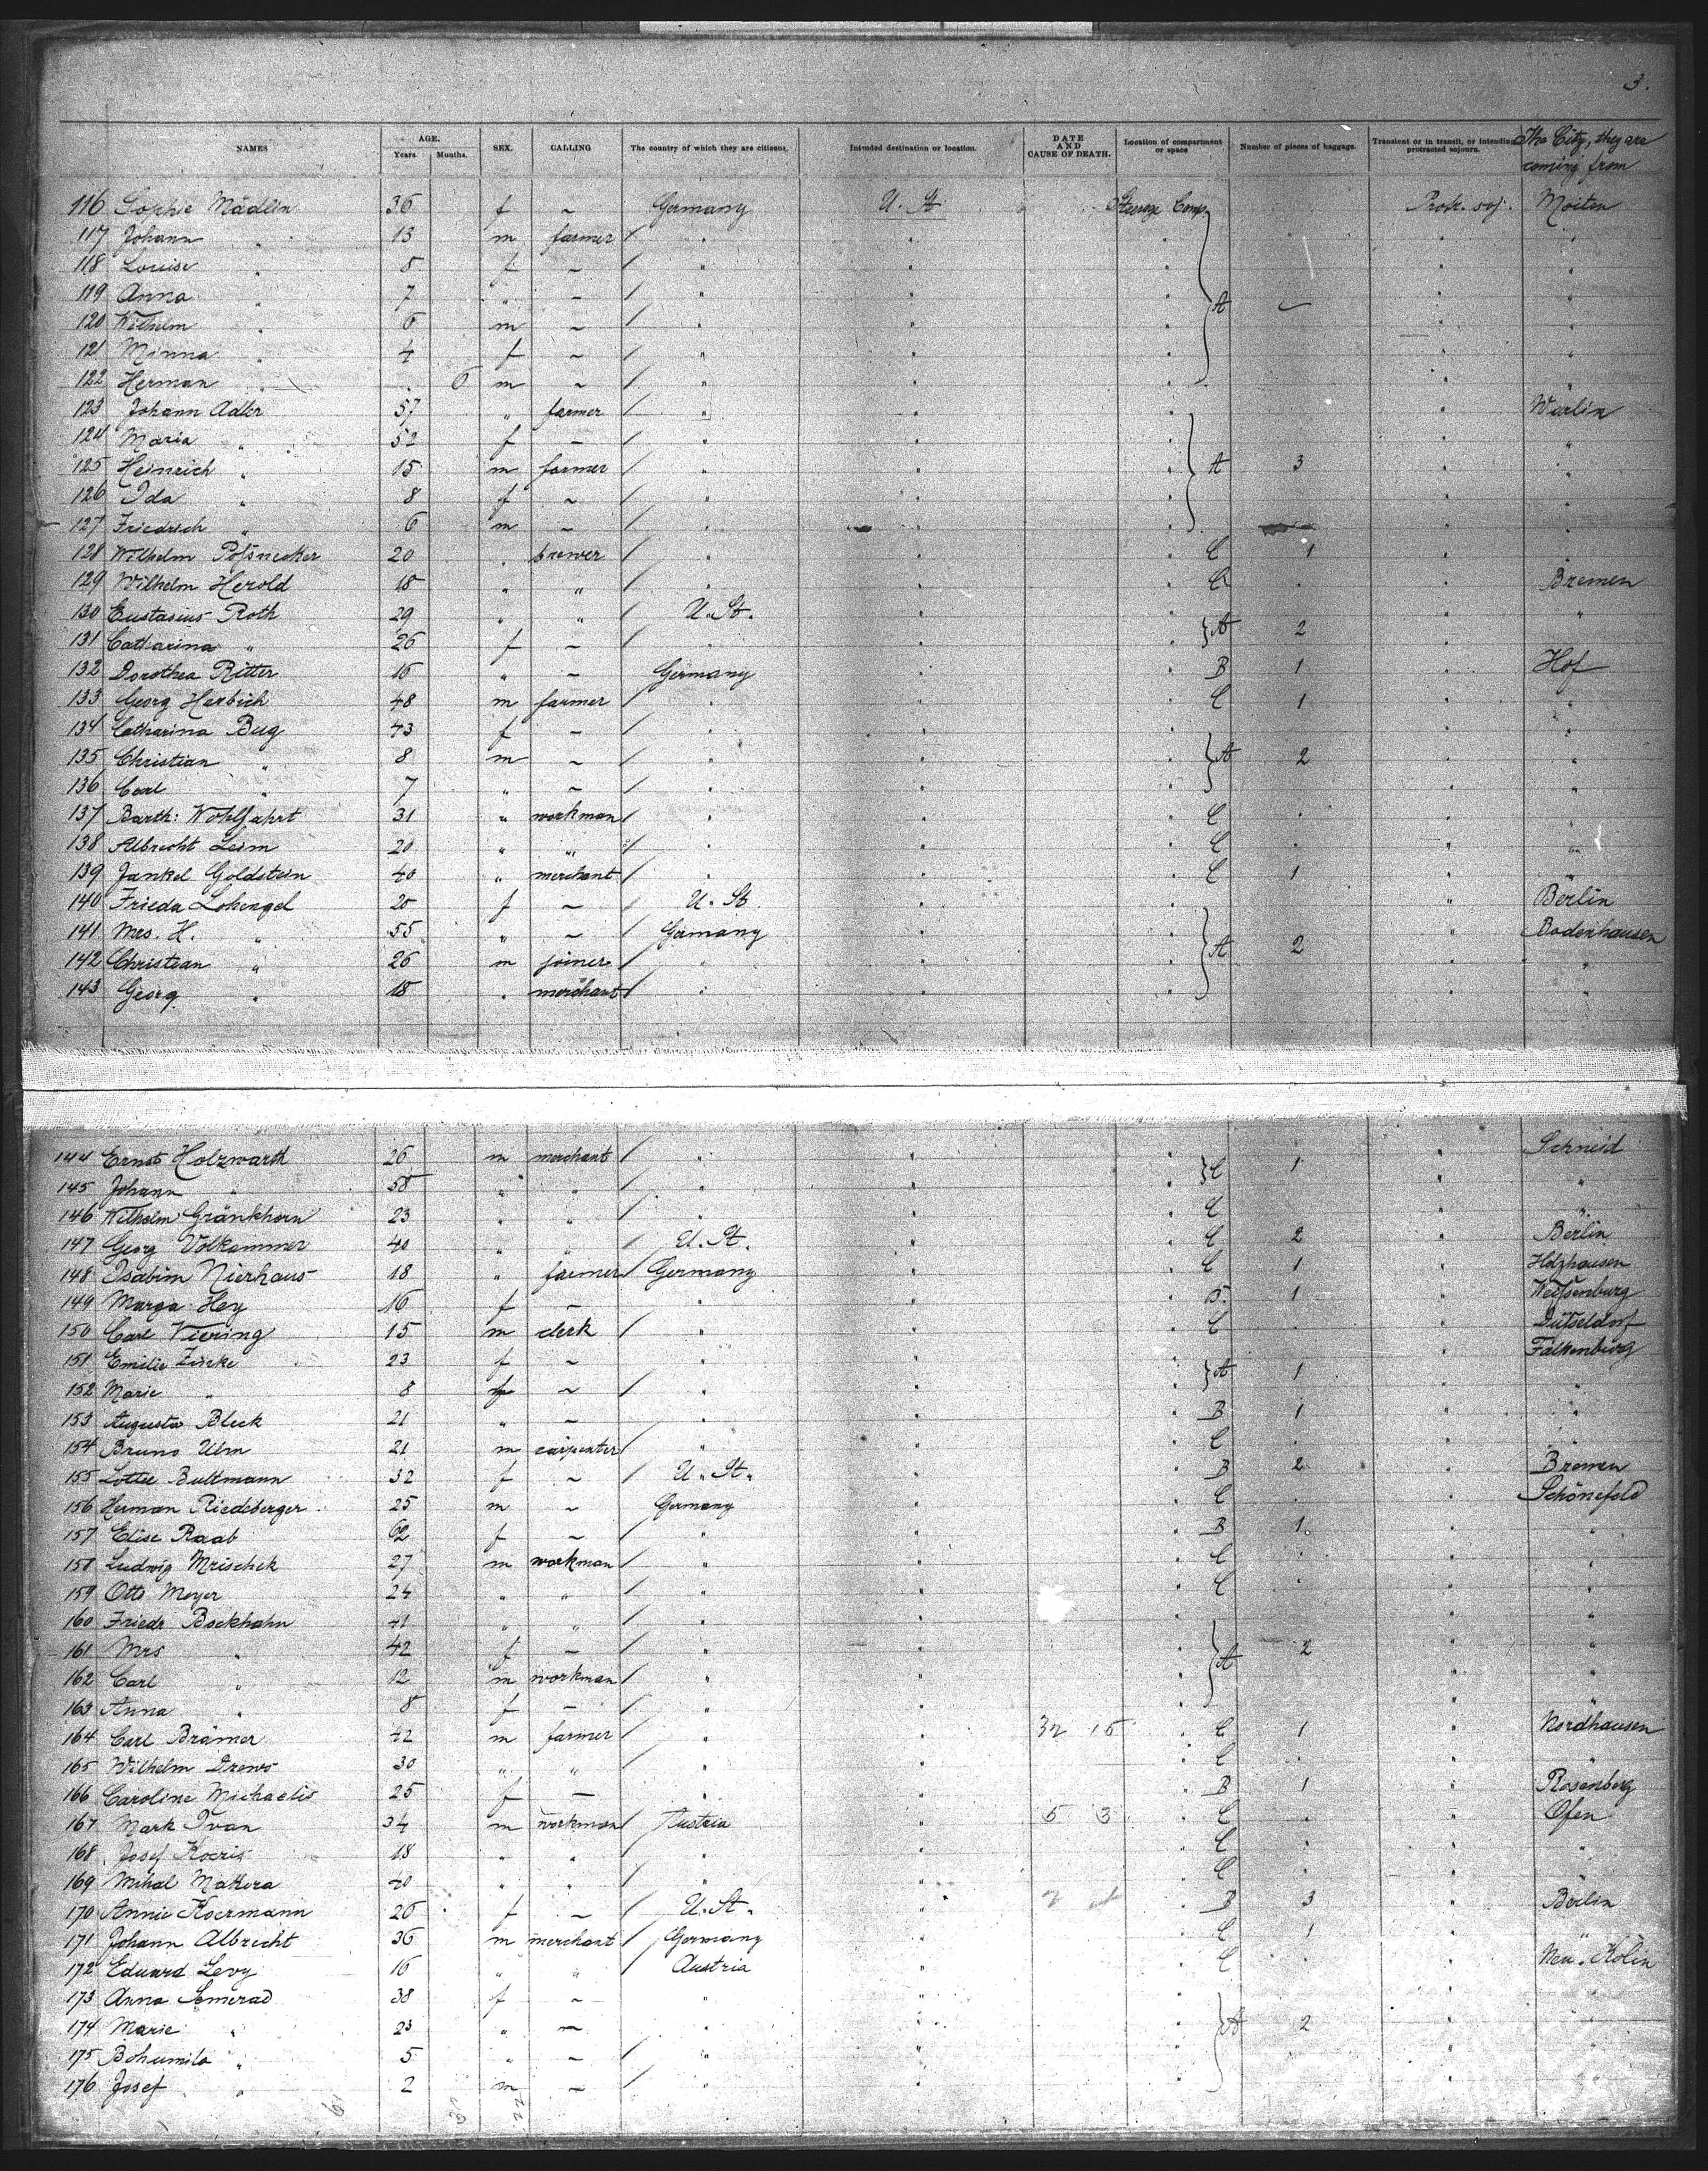 3.
NAMES AGE. Years. Months. SEX. CALLING The country of which they are citizens. Intended destination or location. DATE AND CAUSE OF DEATH. Location of compartment or space Number of pieces of baggage. Transient or in transit, or intending protracted sojourn. The City, they are coming from
116 Sophie Mädlin 36 f ~ Germany U. St Steerage Comp. Protr. soj. Moiten
117 Johann " 13 m farmer / " " " " "
118 Louise " 8 f ~ / " " " " "
119 Anna " 7 " ~ / " " " " "
120 Wilhelm " 6 m ~ / " " " A ~ " "
121 Minna " 4 f ~ / " " " " "
122 Herman " . 6 m ~ / " " " " "
123 Johann Adler 57 " farmer / " " " " Warlin
124 Maria " 52 f ~ / " " " " "
125 Heinrich " 15 m farmer / " " " A 3 " "
126 Ida " 8 f ~ / " " " " "
127 Friedrich " 6 m ~ / " " " " "
128 Wilhelm Poßnecker 20 " brewer / " " " C 1 " "
129 Wilhelm Herold 18 " " / " " " C . " Bremen
130 Eustasius Roth 29 " " / U. St. " " " "
131 Catharina " 26 f ~ / " " " A 2 "
132 Dorothea Ritter 16 " ~ Germany " " B 1 " Hof
133 Georg Herbich 48 m farmer / " " " C 1 " "
134 Catharina Bug 43 f ~ / " " " " "
135 Christian " 8 m ~ / " " " A 2 " "
136 Carl " 7 " ~ / " " " " "
137 Barth: Wohlfahrt 31 " workman / " " " C . " "
138 Albrecht Leim 20 " " / " " " C . " "
139 Jankel Goldstein 40 " merchant / " " " C 1 " "
140 Frieda Lohengel 20 f ~ / U. St. " " " Berlin
141 Mrs. H. " 55 " ~ / Germany " " " Bodenhausen
142 Christian " 26 m joiner / " " " A 2 " "
143 Georg " 18 " merchant / " " " " "
144 Ernst Holzwarth 26 m merchant / " " " C 1 " Schneid
145 Johann " 58 " " / " " " " "
146 Wilhelm Gränkhorn 23 " " / " " " C " "
147 Georg Volkammer 40 " " / U. St. " " C 2 " Berlin
148 Isabim Nierhaus 18 " farmer / Germany " " C 1 " Holzhausen
149 Marga Hey 16 f ~ " " " B. 1 " Weißenburg
150 Carl Viering 15 m clerk / " " " C . " Düßeldorf
151 Emilie Zinke 23 f ~ " " " " Falkenburg
152 Marie " 8 f ~ / " " " A 1 " "
153 Augusta Bleck 21 " ~ " " " B 1 " "
154 Bruno Ulm 21 m carpenter / " " " C . " "
155 Lottie Bultmann 32 f ~ / U. St. " " B 2 " Bremen
156 Herman Riedeberger 25 m ~ Germany " " C . " Schönefeld
157 Elise Raab 62 f ~ " " " B 1. " "
158 Ludwig Mrischek 27 m workman / " " " C . " "
159 Otto Meyer 24 " " / " " " C . " "
160 Friedr Bockhahn 41 " " / " " " " "
161 Mrs " 42 f ~ / " " " A 2 " "
162 Carl " 12 m workman / " " " " "
163 Anna " 8 f ~ / " " " " "
164 Carl Brämer 42 m farmer / " " 32 15 " C 1 " Nordhausen
165 Wilhelm Drews 30 " " / " " " C . " "
166 Caroline Michaelis 25 f ~ " " " B 1 " Rosenberg
167 Mark Ivan 34 m workman / Austria " 5 3 " C . " Ofen
168 Josef Kocris 18 " " / " " " C . " "
169 Mihal Makera 40 " " / " " " C . "
170 Annie Koermann 26 f ~ / U. St. " " B 3 " Berlin
171 Johann Albrecht 36 m merchant / Germany " " C 1 " "
172 Eduard Levy 16 " " / Austria " " C . " Neu. Kolin
173 Anna Semerad 38 f ~ " " " " "
174 Marie " 23 " ~ " " " A 2 " "
175 Bohumila " 5 " ~ / " " " " "
176 Josef " 2 m ~ / " " " " "